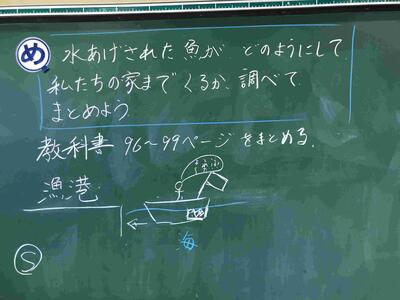 め
水あげされた魚が どのようにして
私たちの家まで くるか、調べて
まとめよう
教科書 96〜99ページ をまとめる.
漁港
海
S